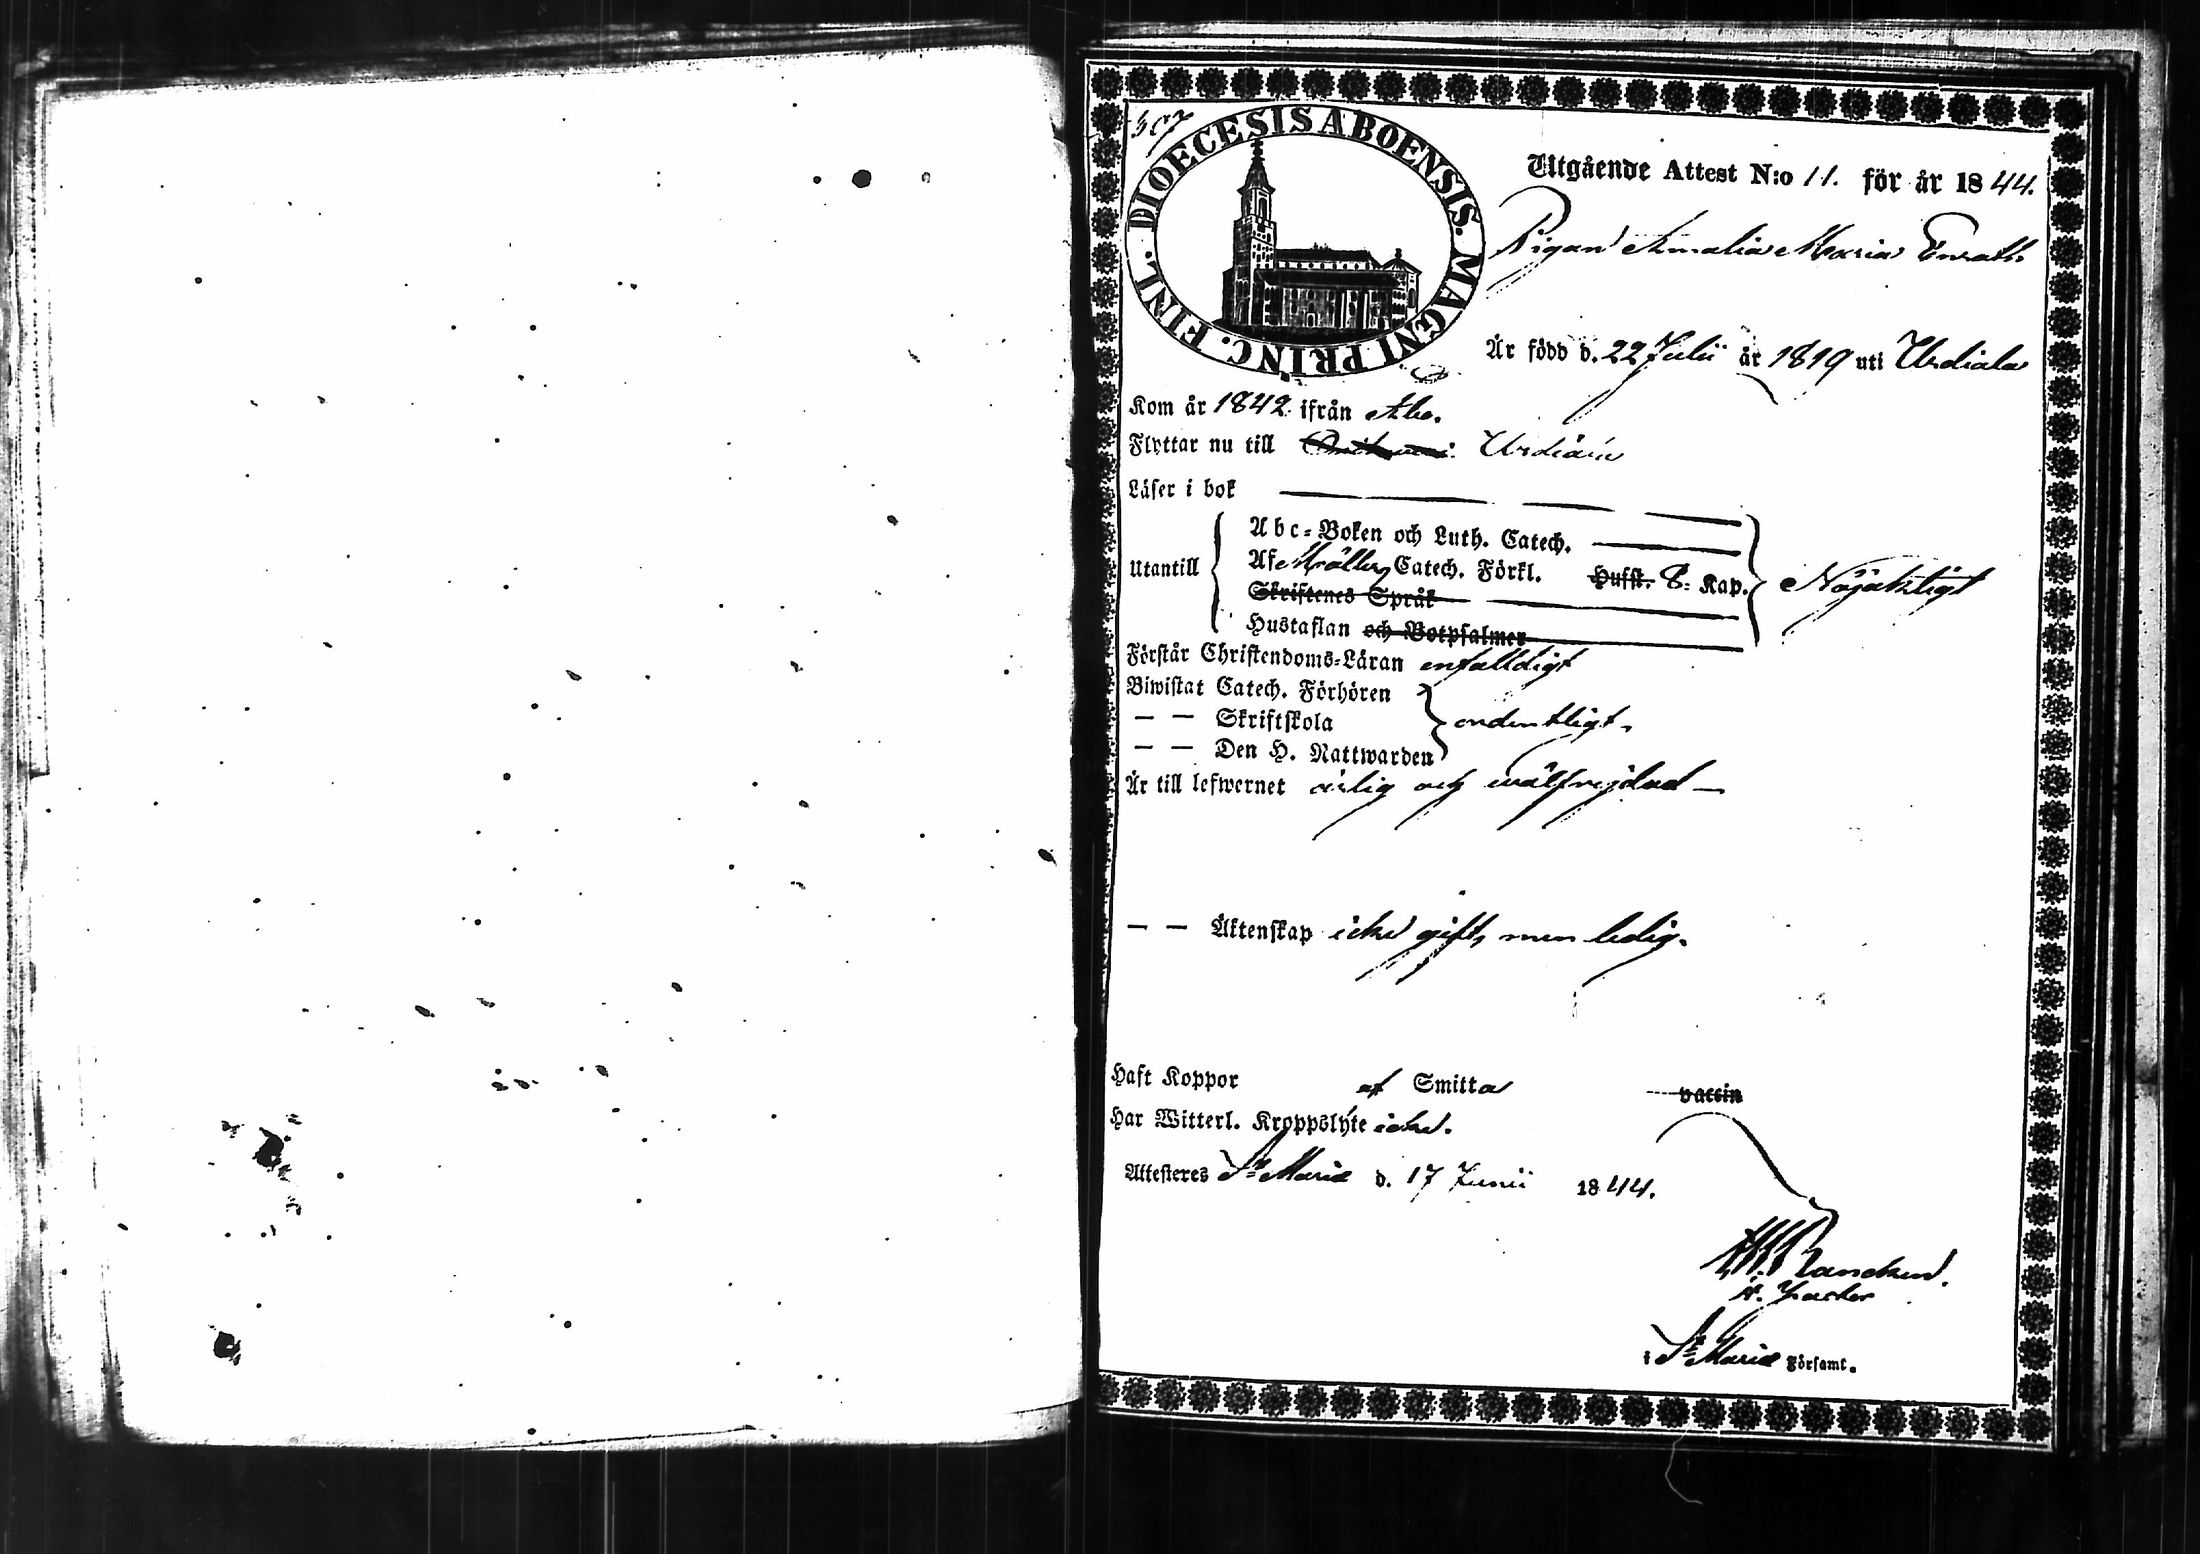 507
DIOECESIS ABOENSIS. MAGNI PRINC. FINL.
Utgående Attest N:o 11. för år 1844.
Pigan Amalia Maria Enrath
Är född d. 22 Julii år 1819 uti Urdiala
Kom år 1842 ifrån Åbo.
Flyttar nu till Urdiala
Läser i bok
Utantill
Abc-Boken och Luth. Catech.
Af Möllers Catech. Förkl. Hufst. 8: Kap. Nöjaktligt
Skriftenes Språk
Hustaflan och Botpsalmer
Förstår Christendoms-Läran enfalldigt
Biwistat Catech. Förhören
— — Skriftskola ordentligt.
— — Den H. Nattwarden
Är till lefwernet ärlig och wälfrejdad —
— — Äktenskap icke gift, men ledig.
Haft Koppor af Smitta vaccin
Har Witterl. Kroppslyte icke.
Attesteres St Marie d. 17 Junii 1844.
Rancken.
i St Marie Församl.